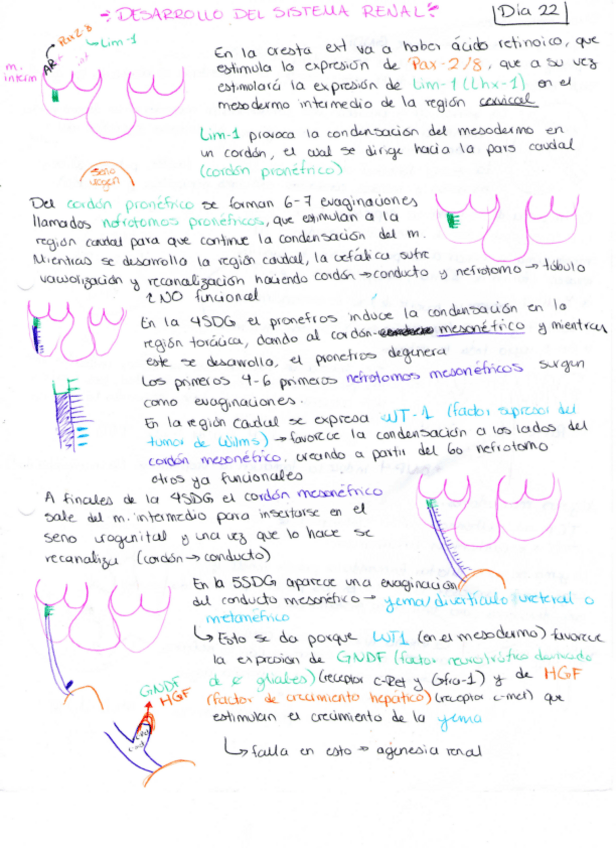 DESARROLLO DEL SISTEMA RENAL
Día 22
Pax 2-8
Lim-1
AR
m.
interm
En la cresta ext va a haber ácido retinoico, que
estimula la expresión de Pax-2/8, que a su vez
estimulará la expresión de Lim-1 (Lhx-1) en el
mesodermo intermedio de la región cervical
Lim-1 provoca la condensación del mesodermo en
un cordón, el cual se dirige hacia la pars caudal
(cordón pronéfrico)
Seno
urogen
Del cordón pronéfrico se forman 6-7 evaginaciones
llamados nefrotomos pronéfricos, que estimulan a la
región caudal para que continue la condensación del m.
Mientras se desarrolla la región caudal, la cefálica sufre
vacuolización y recanalización haciendo cordón → conducto y nefrotomo → túbulo
NO funcional
En la 4SDG el pronefros induce la condensación en la
región torácica, dando al cordón mesonéfrico y mientras
este se desarrolla, el pronefros degenera
Los primeros 4-6 primeros nefrotomos mesonéfricos surgen
como evaginaciones.
En la región caudal se expresa WT-1 (factor supresor del
tumor de Wilms) → favorece la condensación a los lados del
cordón mesonéfrico, creando a partir del 6o nefrotomo
otros ya funcionales
A finales de la 4SDG el cordón mesonéfrico
sale del m. intermedio para insertarse en el
seno urogenital y una vez que lo hace se
recanaliza (cordón → conducto)
En la 5SDG aparece una evaginación
del conducto mesonéfrico → yema/divertículo ureteral o
metanéfrico
↳ Esto se da porque WT1 (en el mesodermo) favorece
la expresión de GNDF (factor neurotrófico derivado
de c gliales) (receptor c-Ret y Gfra-1) y de HGF
(factor de crecimiento hepático) (receptor c-met) que
estimulan el crecimiento de la yema
GNDF
HGF
↳ falla en esto → agenesia renal